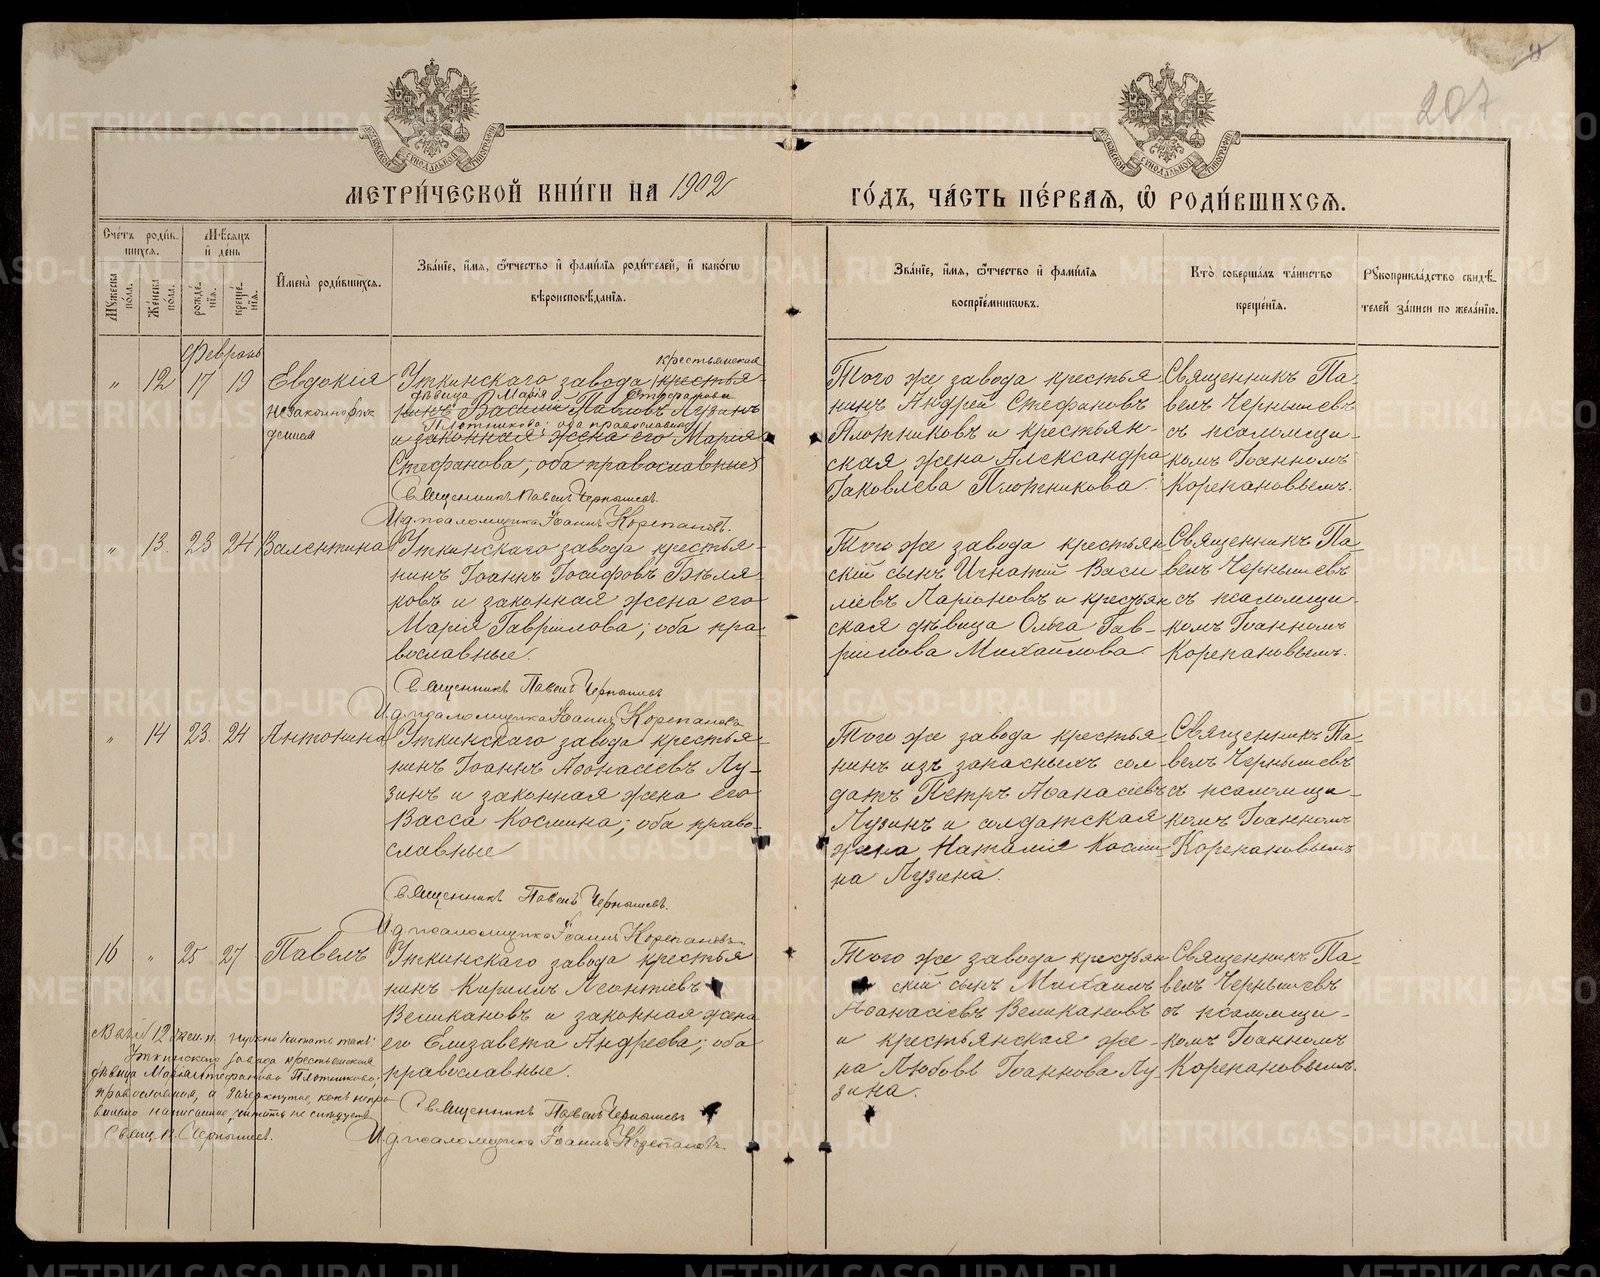 МЕТРИ́ЧЕСКОЙ КНИ́ГИ НА 1902
ГО́ДЪ, ЧА́СТЬ ПЕ́РВАѦ, Ѡ҆ РОДИ́ВШИХСѦ.
207
Сче́тъ роди́в-
шихсѧ.
Мѣ́сѧцъ
и҆ де́нь
Мꙋ́жеска
по́ла.
Же́нска
по́ла.
рожде́-
нїѧ.
креще́-
нїѧ.
И҆мена̀ роди́вшихсѧ.
Зва́нїе, и҆́мѧ, ѻ҆́тчество и҆ фами́лїѧ роди́телей, и҆ како́гѡ
вѣроисповѣ́данїѧ.
Зва́нїе, и҆́мѧ, ѻ҆́тчество и҆ фами́лїѧ
воспрїе́мникѡвъ.
Кто̀ соверша́лъ та́инство
креще́нїѧ.
Рꙋкоприкла́дство свидѣ́-
телей за́писи по жела́нїю.
Февраль
" 12 17 19 Евдокія
незаконнорож
денная
крестьянская
Уткинскаго завода крестья-
дѣвица Марія Стефанова
нинъ Василій Павловъ Лузинъ
Плотникова; оба православные
и законная жена его Марія
Стефанова; оба православные
Священникъ Павелъ Чернышевъ.
И. д. псаломщика Іоаннъ Корепановъ.
Того же завода крестья-
нинъ Андрей Стефановъ
Плотниковъ и крестьян-
ская жена Александра
Іаковлева Плотникова
Священникъ Па-
велъ Чернышевъ
съ псаломщи-
комъ Іоанномъ
Корепановымъ.
" 13. 23 24 Валентина
Уткинскаго завода крестья-
нинъ Іоаннъ Іосифовъ Бѣля-
ковъ и законная жена его
Марія Гавріилова; оба пра-
вославные.
Священникъ Павелъ Чернышевъ
И. д. псаломщика Іоаннъ Корепановъ
Того же завода крестьян-
скій сынъ Игнатій Васи-
ліевъ Ларіоновъ и крестьян-
ская дѣвица Ольга Гав-
ріилова Михайлова
Священникъ Па-
велъ Чернышевъ
съ псаломщи-
комъ Іоанномъ
Корепановымъ.
" 14 23. 24 Антонина
Уткинскаго завода крестья-
нинъ Іоаннъ Аѳонасіевъ Лу-
зинъ и законная жена его
Васса Космина; оба право-
славные
Священникъ Павелъ Чернышевъ.
И. д. псаломщика Іоаннъ Корепановъ
Того же завода крестья-
нинъ изъ запасныхъ сол-
датъ Петръ Аѳанасіевъ
Лузинъ и солдатская
жена Наталія Косми-
на Лузина.
Священникъ Па-
велъ Чернышевъ
съ псаломщи-
комъ Іоанномъ
Корепановымъ
16 " 25 27 Павелъ
Уткинскаго завода крестья
нинъ Кириллъ Леонтіевъ
Великановъ и законная жена
его Елизавета Андреева; оба
православные.
Священникъ Павелъ Чернышевъ
И. д. псаломщика Іоаннъ Корепановъ.
Того же завода крестьян-
скій сынъ Михаилъ
Аѳанасіевъ Великановъ
и крестьянская же-
на Любовь Іоаннова Лу-
зина.
Священникъ Па-
велъ Чернышевъ
съ псаломщи-
комъ Іоанномъ
Корепановымъ.
12 жен. п. нужно читать такъ:
Уткинскаго завода крестьянская
дѣвица Марія Стефанова Плотникова,
православная, а зачеркнутое, какъ непра-
вильно написанное, читать не слѣдуетъ
Свящ. П. Чернышевъ.
METRIKI.GASO-URAL.RU